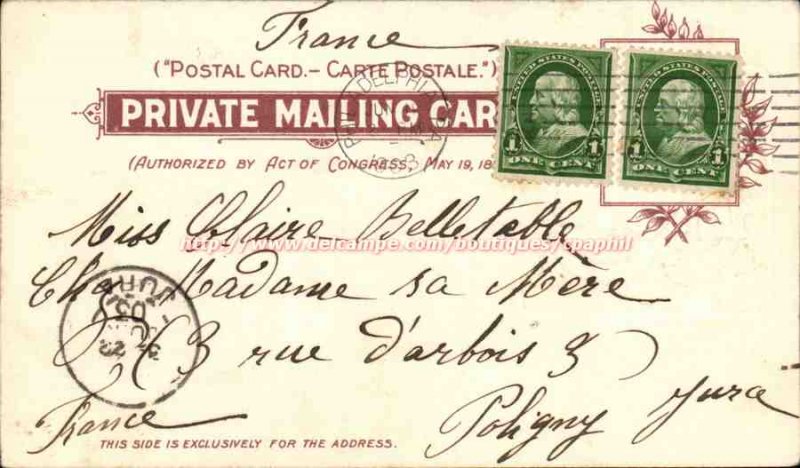 France
("POSTAL CARD.- CARTE POSTALE.")
PRIVATE MAILING CAR
(AUTHORIZED BY ACT OF CONGRESS, MAY 19, 18
PHILADELPHIA
UNITED STATES POSTAGE
1 ONE CENT 1
UNITED STATES POSTAGE
1 ONE CENT 1
Miss Claire Belletable
http://www.delcampe.com/boutiques/cpaphil
Chez Madame sa Mère
(3 rue d'arbois 3)
JURA
03
Poligny Jura
France
THIS SIDE IS EXCLUSIVELY FOR THE ADDRESS.